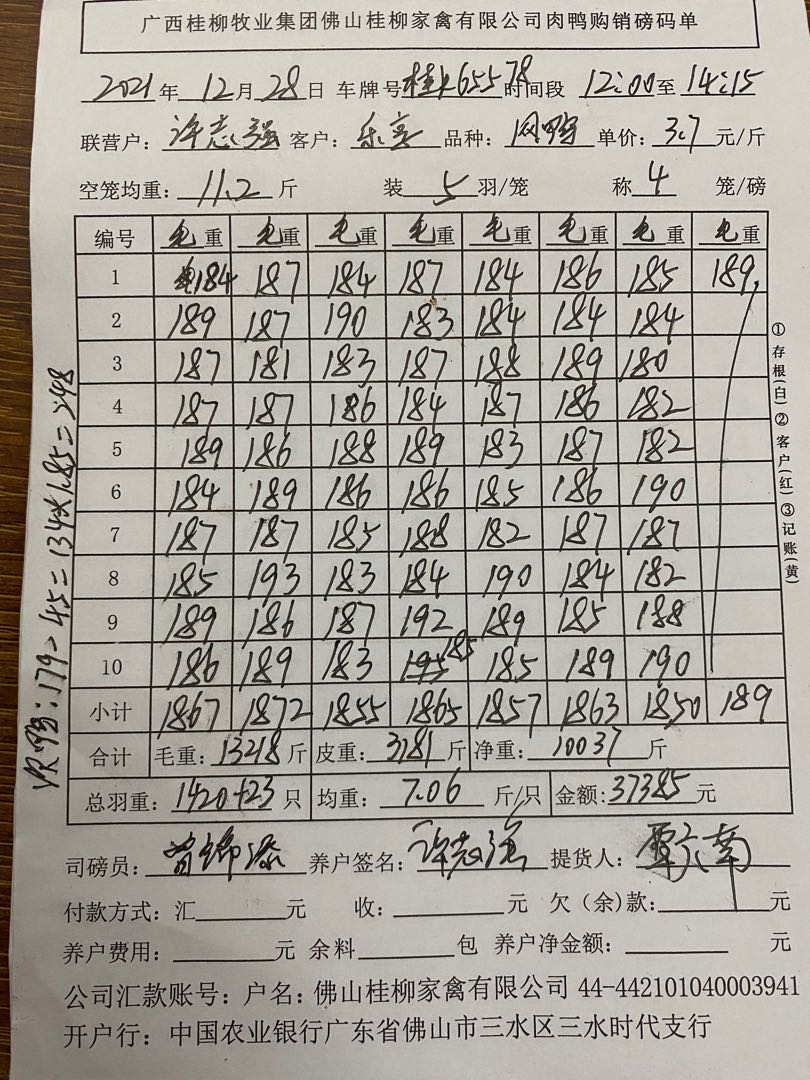 广西桂柳牧业集团佛山桂柳家禽有限公司肉鸭购销磅码单
2021年 12月 28日 车牌号 65578 时间段 12:00至 14:15
联营户: 许志强 客户: 乐 品种: 网鸭 单价: 3.7 元/斤
空笼均重: 11.2 斤 装 5 羽/笼 称 4 笼/磅
编号 毛重 毛重 毛重 毛重 毛重 毛重 毛重 毛重
1 184 187 184 187 184 186 185 189
2 189 187 190 183 184 184 184
3 187 181 183 187 188 189 180
4 187 187 186 184 187 186 182
5 189 186 188 189 183 187 182
6 184 189 186 186 185 186 190
7 187 187 185 188 182 187 187
8 185 193 183 184 190 184 182
9 189 186 187 192 189 185 188
10 186 189 183 185 185 189 190
小计 1867 1872 1855 1865 1857 1863 1850 189
合计 毛重: 13218 斤 皮重: 3181 斤 净重: 10037 斤
总羽重: 1420+23 只 均重: 7.06 斤/只 金额: 37385 元
司磅员: 养户签名: 许志强 提货人:
付款方式: 汇 元 收: 元 欠(余)款: 元
养户费用: 元 余料 包 养户净金额: 元
公司汇款账号: 户名: 佛山桂柳家禽有限公司 44-442101040003941
开户行: 中国农业银行广东省佛山市三水区三水时代支行
①存根(白)②客户(红)③记账(黄)
179-45=134*1.85=248